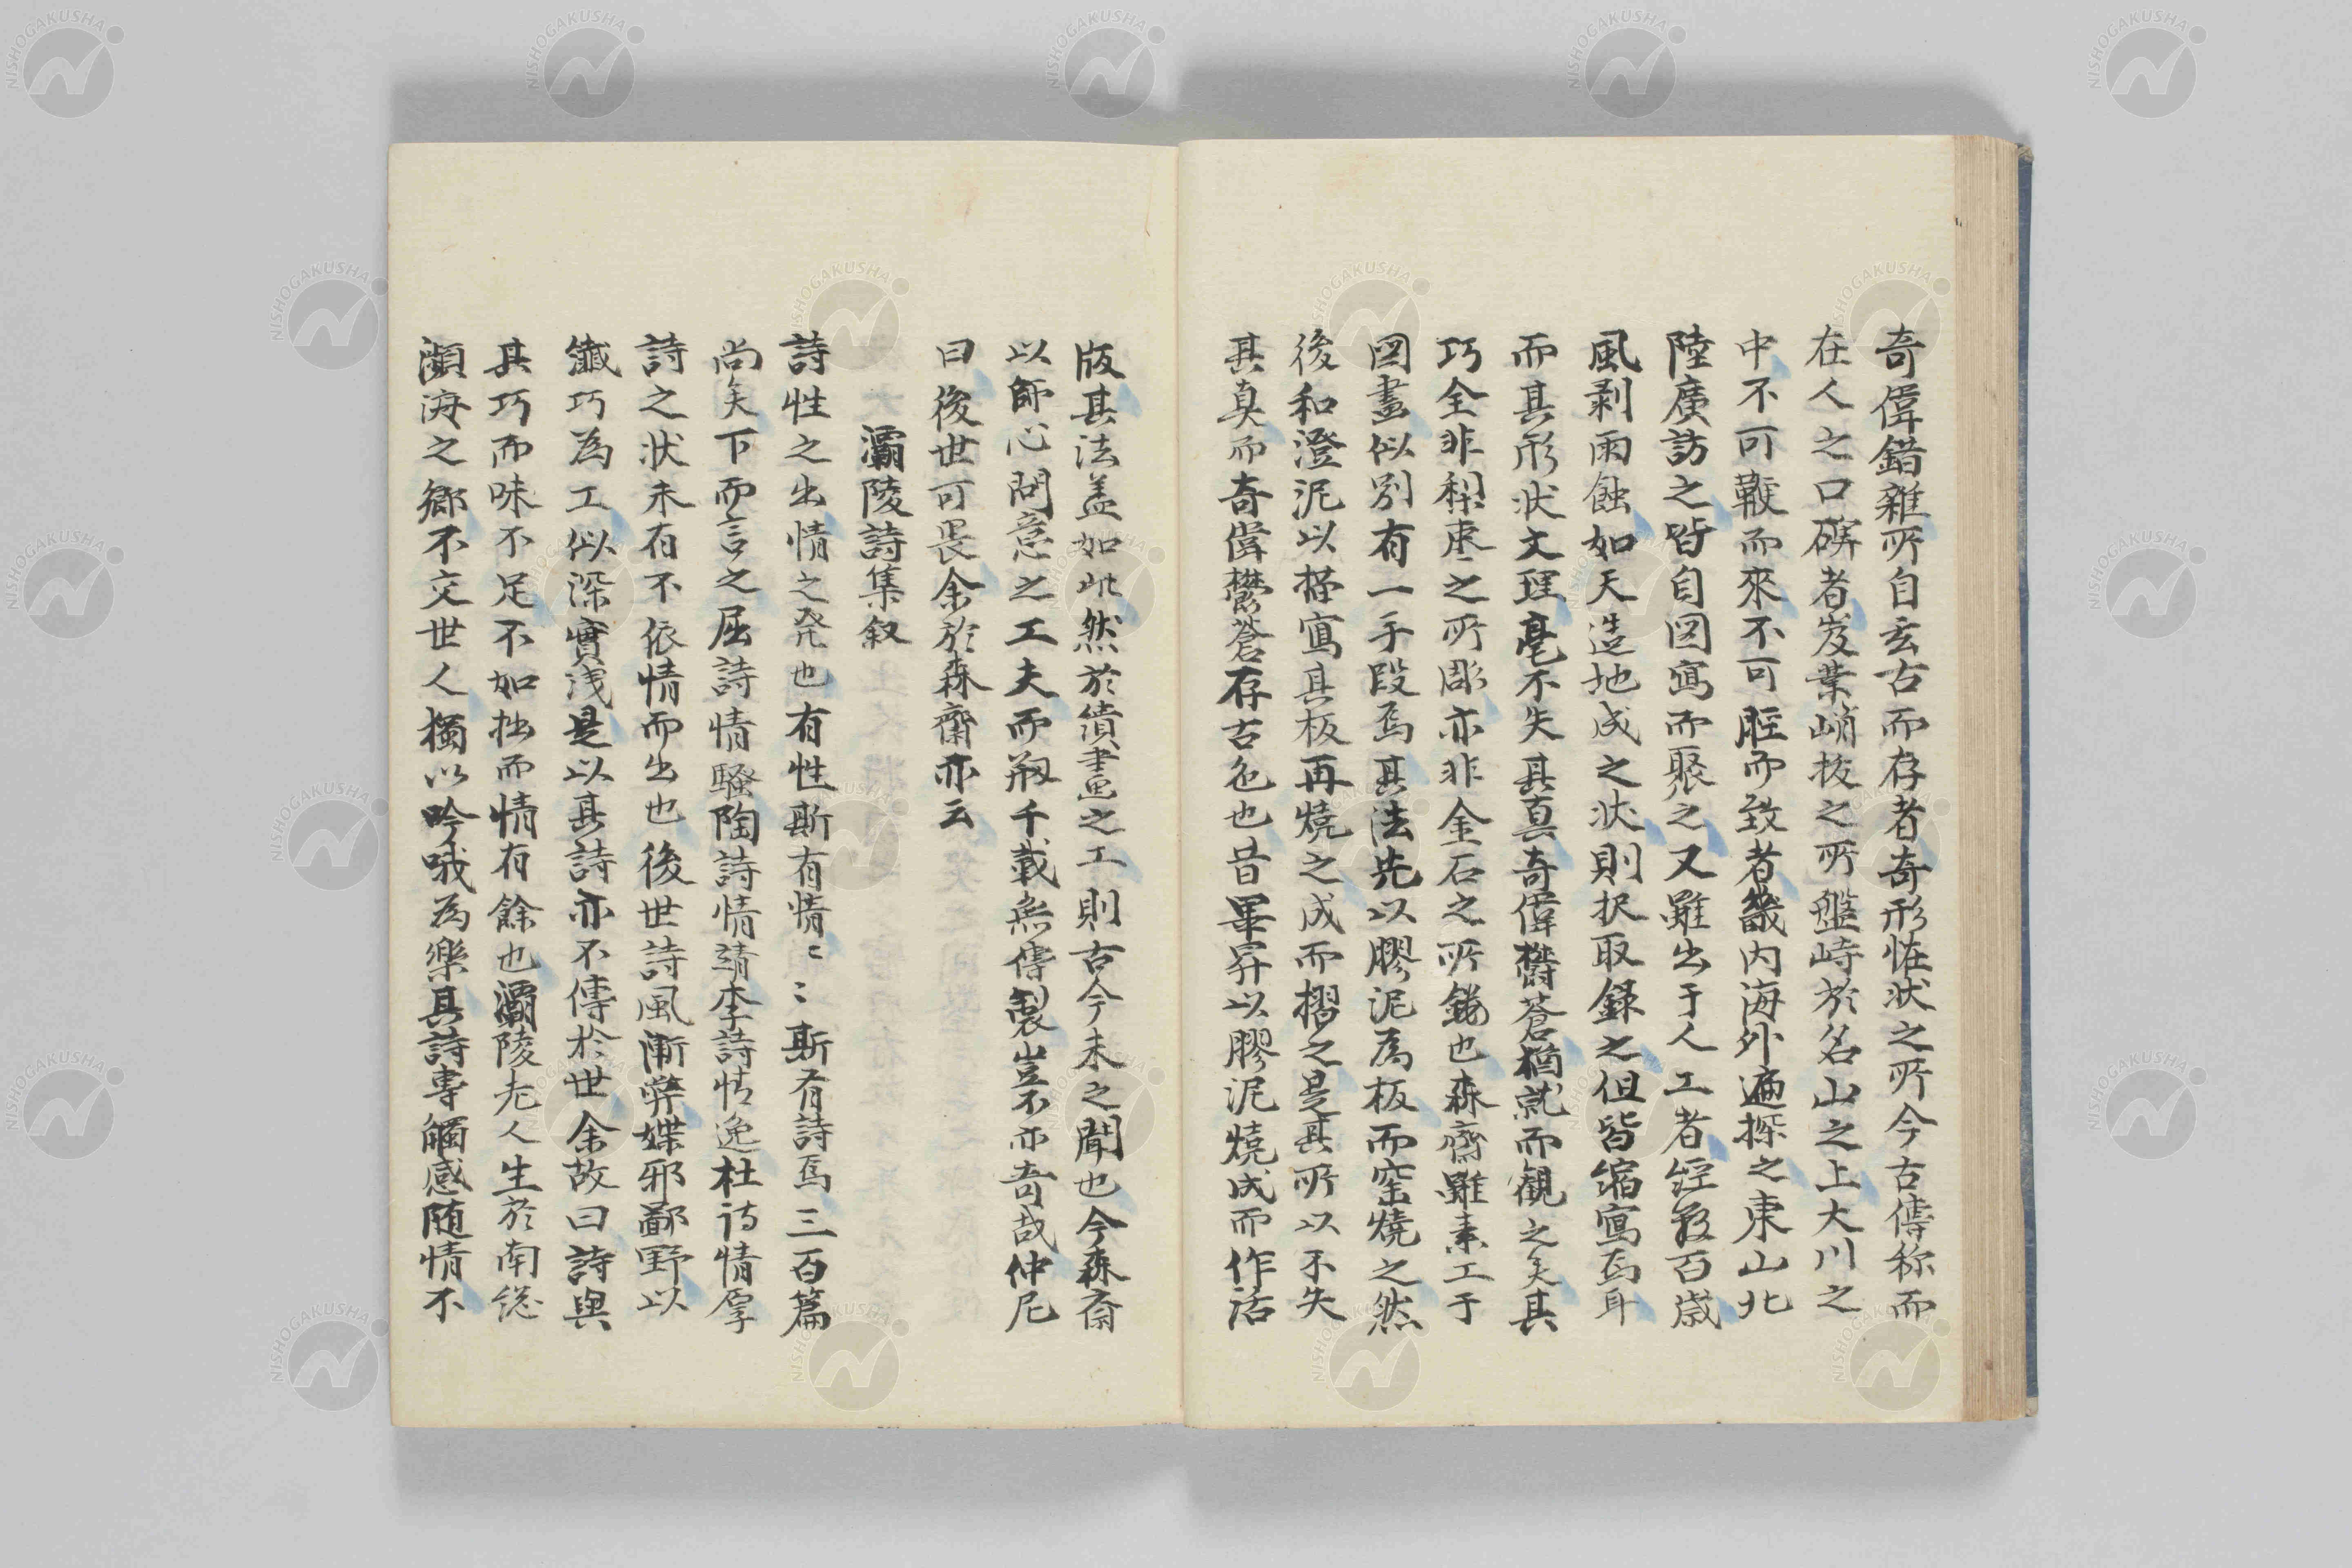 奇偉錯雜所自玄古而存者奇形怪状之所今古傳称而
在人之口碑者岌業峭拔之所盤峙於名山之上大川之
中不可鞭而來不可脛而致者畿内海外遍探之東山北
陸廣訪之皆自図寫而聚之又雖出于人工者經数百歳
風剥雨蝕如天造地成之状則択取録之但皆縮寫焉耳
而其形状文理毫不失其真奇偉欝蒼猶就而觀之矣其
巧全非梨棗之所彫亦非金石之所鐫也森齋雖素工于
図畫似別有一手段焉其法先以膠泥為板而窑燒之然
後和澄泥以搨寫其板再燒之成而摺之是其所以不失
其真而奇偉欝蒼存古色也昔畢昇以膠泥燒成而作活
版其法盖如此然於繢畫之工則古今未之聞也今森斎
以師心問意之工夫而剏千載無傳製豈不亦奇哉仲尼
曰後世可畏余於森齋亦云
灞陵詩集叙
詩性之出情之発也有性斯有情〻〻斯有詩焉三百篇
尚矣下而言之屈詩情騒陶詩情靖李詩情逸杜詩情厚
詩之状未有不依情而出也後世詩風漸弊媟邪鄙野以
纎巧為工似深實浅是以其詩亦不傳於世余故曰詩與
其巧而味不足不如拙而情有餘也灞陵老人生於南総
瀕海之郷不交世人獨以吟哦為樂其詩專觸感随情不
NISHOGAKUSHA